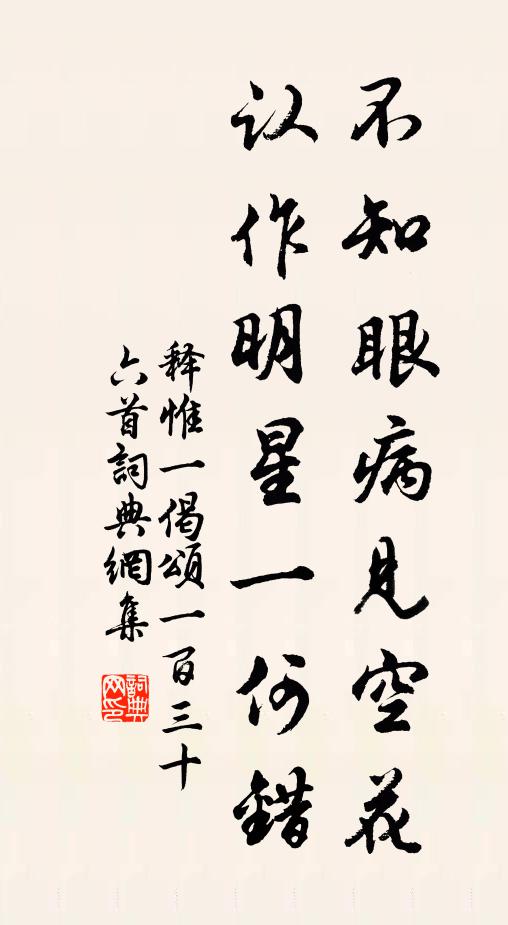 不知眼病见空花
认作明星一何錯
释惟一偈頌一百三十
六首詞典網集
詞典网印